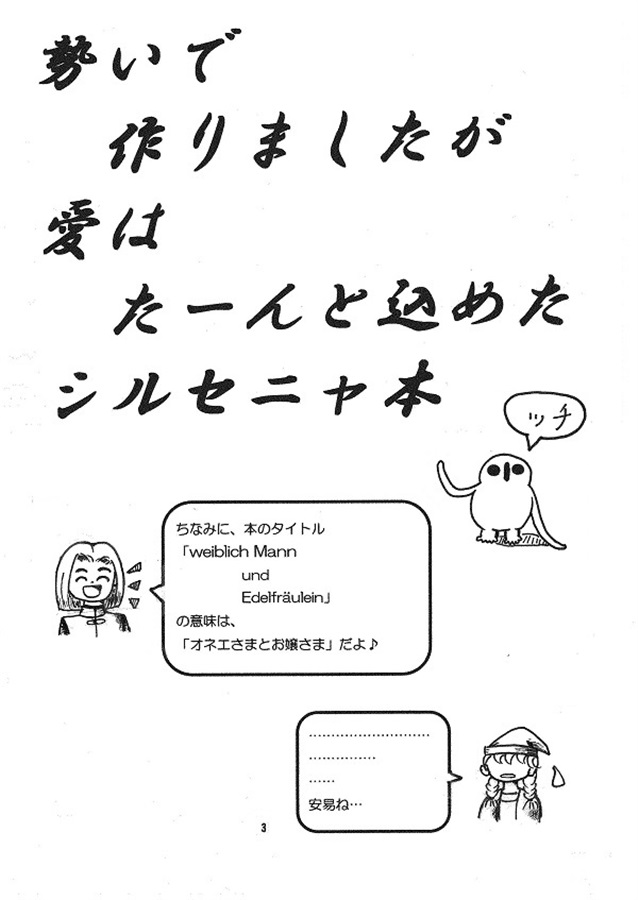 勢いで
作りましたが
愛は
たーんと込めた
シルセニャ本
ッチ
ちなみに、本のタイトル
「weiblich Mann
und
Edelfräulein」
の意味は、
「オネエさまとお嬢さま」だよ♪
…………………………
……………
……
安易ね…
3